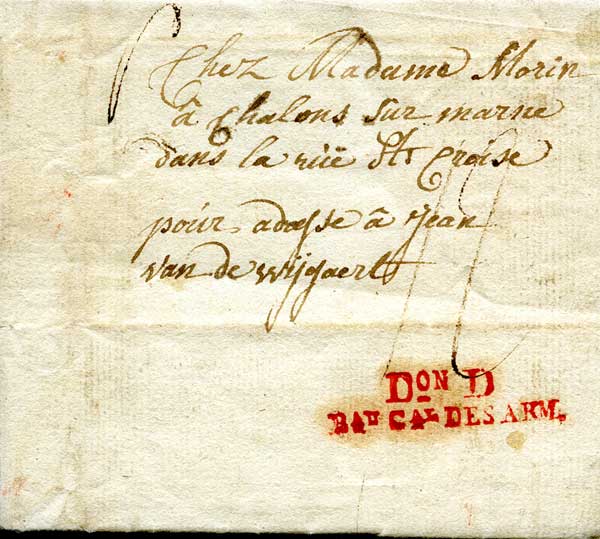 Chez Madame Morin
â Chalons sur marne
dans la rüe Ste Croise
pour adresse â Jean
van de wijgaert
DON D
BAU CAL DES ARM.